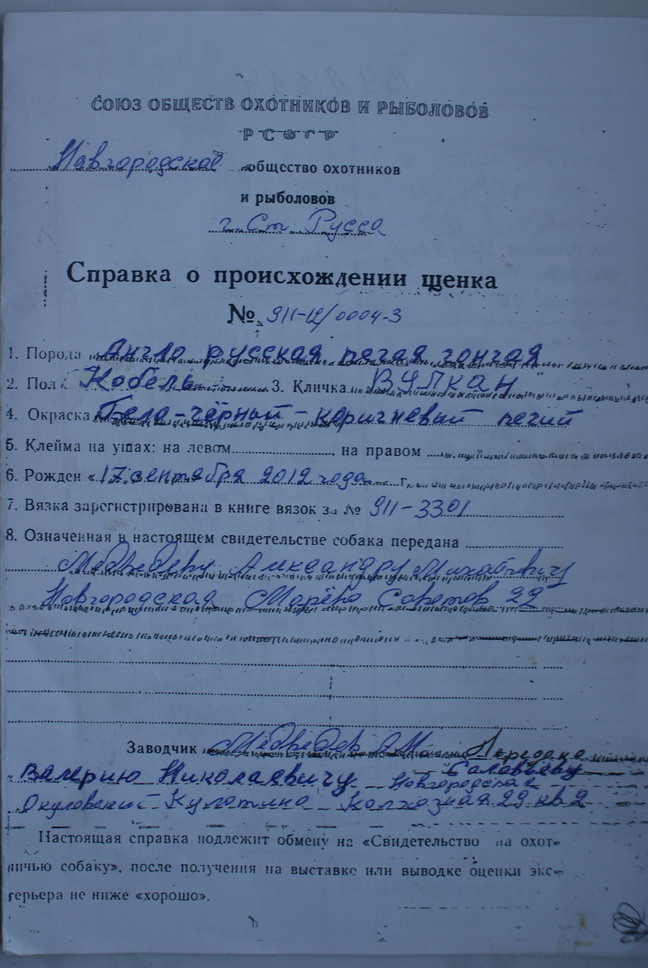 СОЮЗ ОБЩЕСТВ ОХОТНИКОВ И РЫБОЛОВОВ
РСФСР
Новгородское общество охотников
и рыболовов
г. Ст. Русса
Справка о происхождении щенка
№ 911-12/0004-3
1. Порода Англо русская пегая гончая
2. Пол Кобель 3. Кличка Вулкан
4. Окраска Бело-чёрный-коричневый пегий
5. Клейма на ушах: на левом на правом
6. Рожден « 17 сентября 2012 года г.
7. Вязка зарегистрирована в книге вязок за № 911-3301
8. Означенная в настоящем свидетельстве собака передана
Медведеву Александру Михайловичу
Новгородская Марёво Советов 22
Заводчик Медведев А.М. Передана
Соловьеву
Валерию Николаевичу Новгородская
Окуловский Кулотино Колхозная 29 кв 2
Настоящая справка подлежит обмену на «Свидетельство на охот-
ничью собаку», после получения на выставке или выводке оценки экс-
терьера не ниже «хорошо».